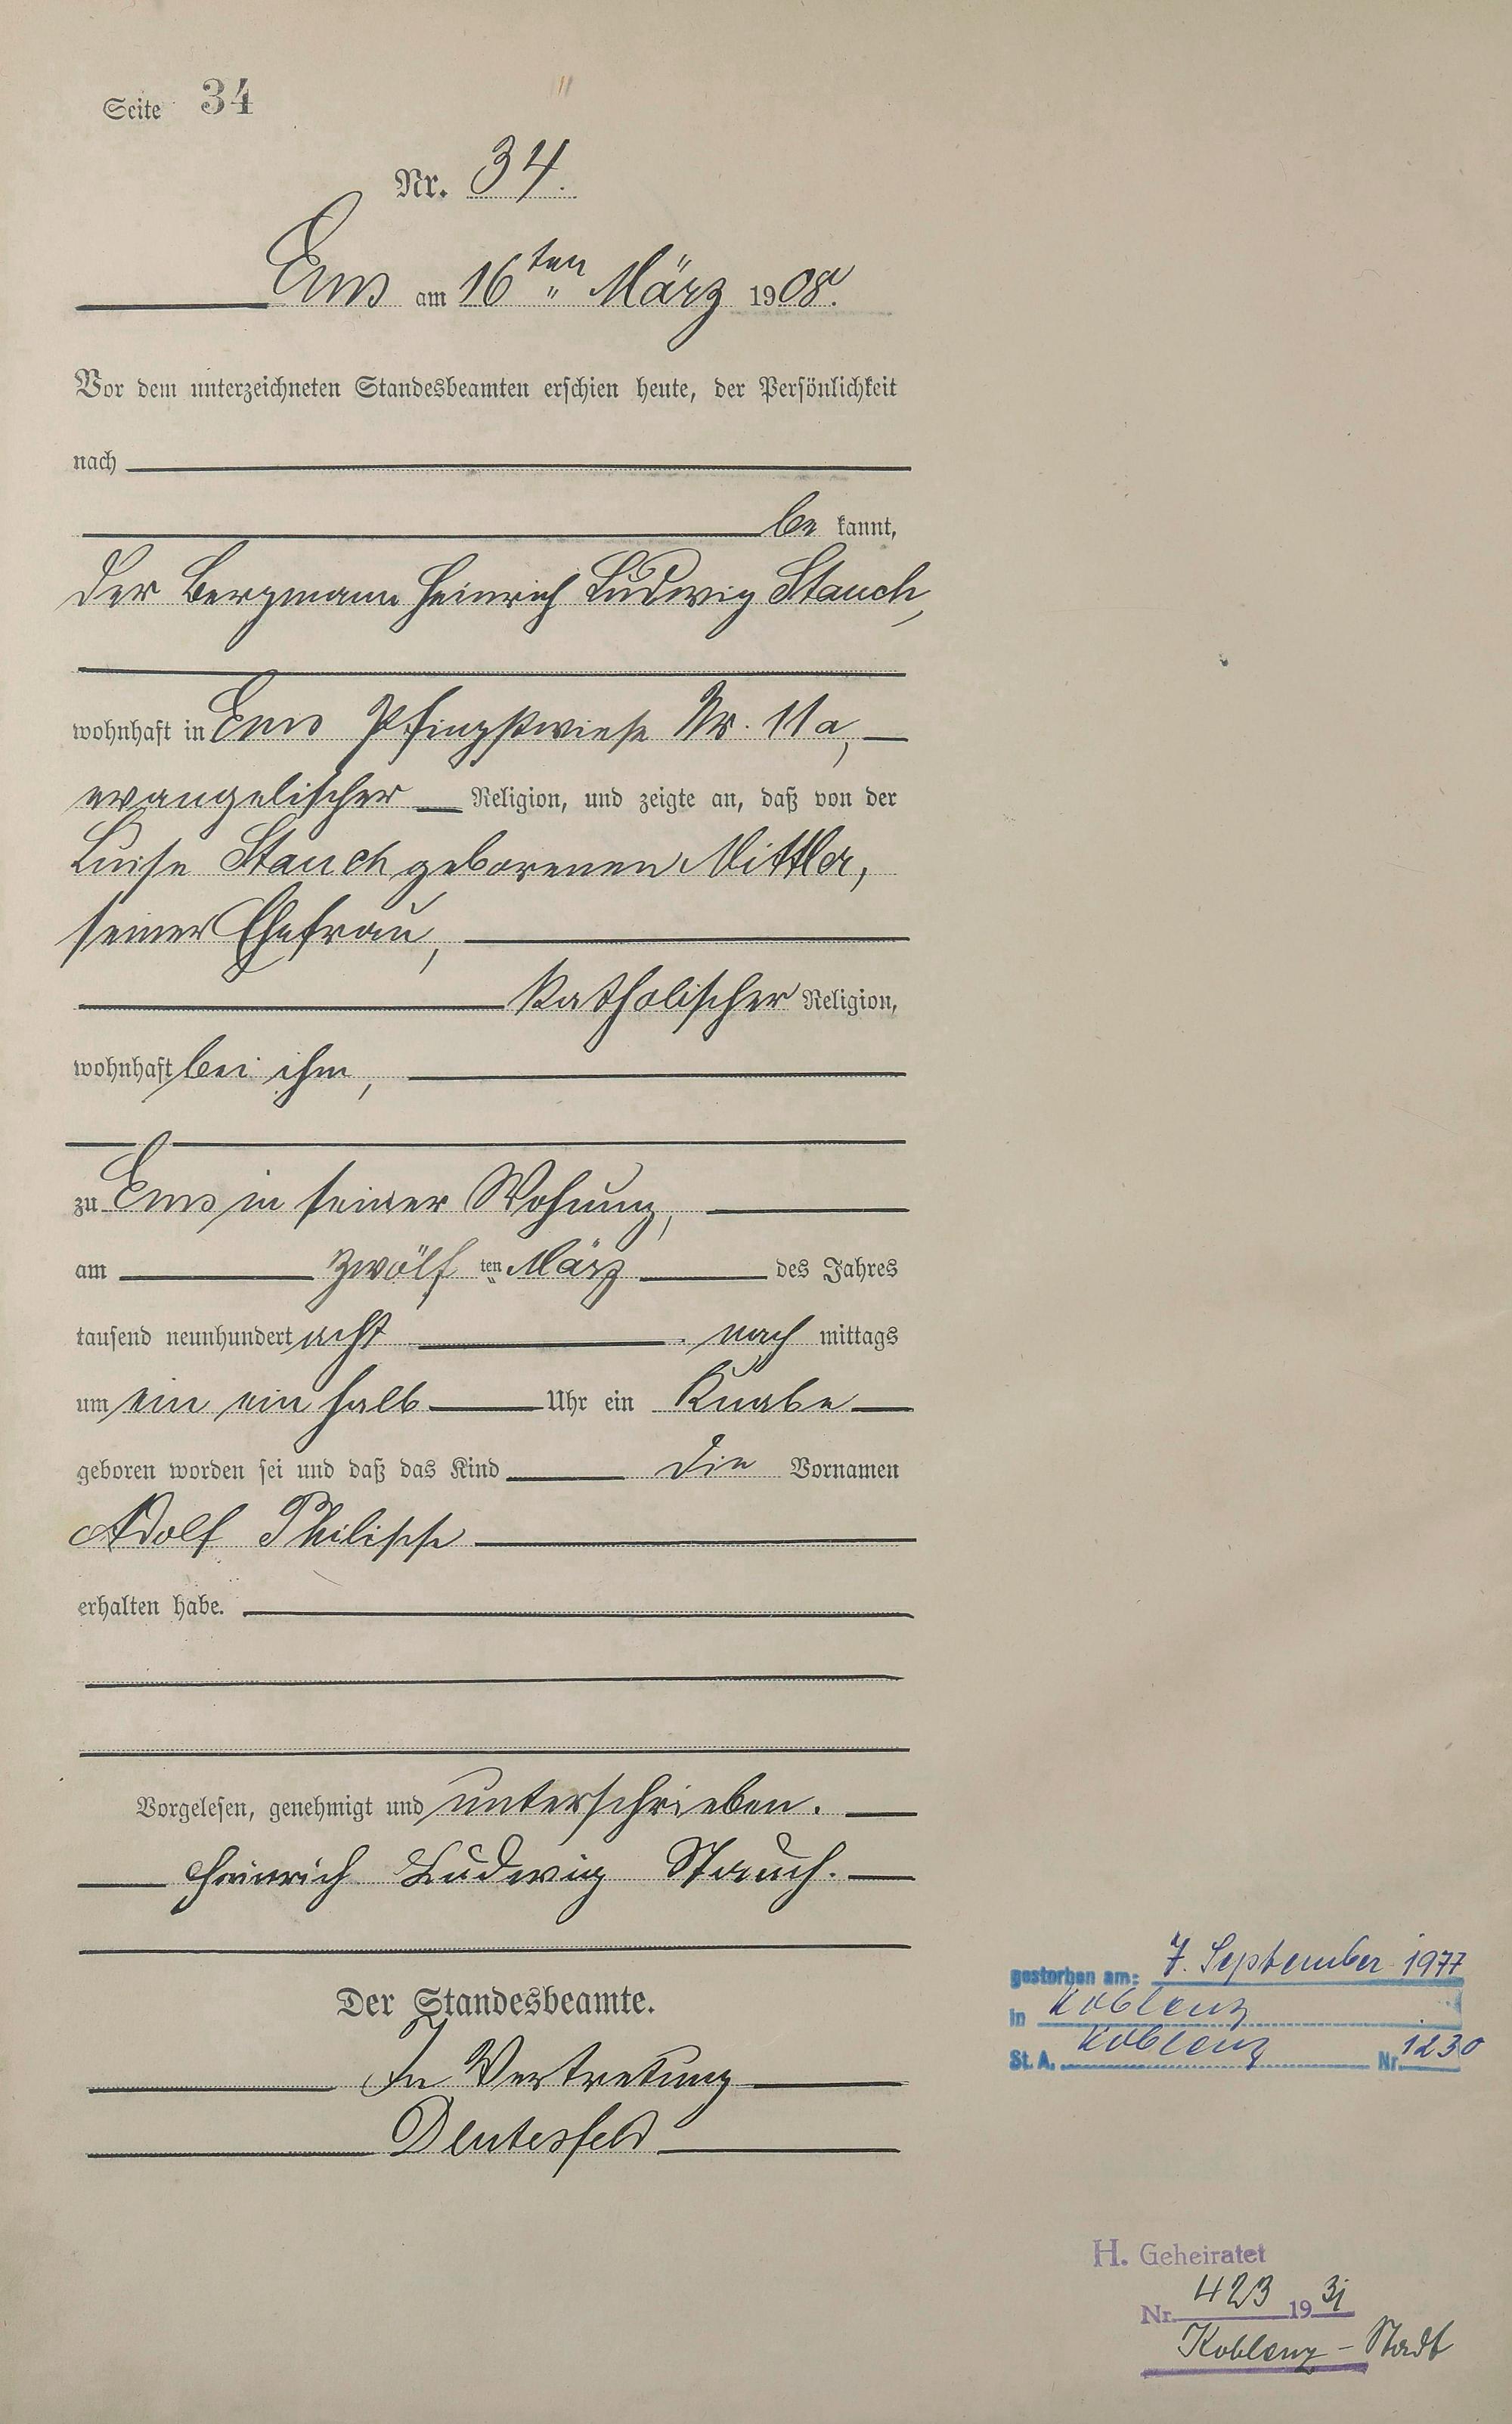 Seite 34
Nr. 34.
Ems am 16ten März 1908.
Vor dem unterzeichneten Standesbeamten erschien heute, der Persönlichkeit
nach
be kannt,
der Bergmann Heinrich Ludwig Stauch,
wohnhaft in Ems Pfingstwiese Nr. 11a,
evangelischer Religion, und zeigte an, daß von der
Luise Stauch geborenen Mittler,
seiner Ehefrau,
katholischer Religion,
wohnhaft bei ihm,
zu Ems in seiner Wohnung,
am zwölf ten März des Jahres
tausend neunhundert acht nach mittags
um ein ein halb Uhr ein Knabe
geboren worden sei und daß das Kind die Vornamen
Adolf Philipp
erhalten habe.
Vorgelesen, genehmigt und unterschrieben.
Heinrich Ludwig Stauch.
Der Standesbeamte.
In Vertretung
gestorben am: 7. September 1977
in Koblenz
St. A. Koblenz Nr. 1230
H. Geheiratet
Nr. 423 1931
Koblenz-Stadt